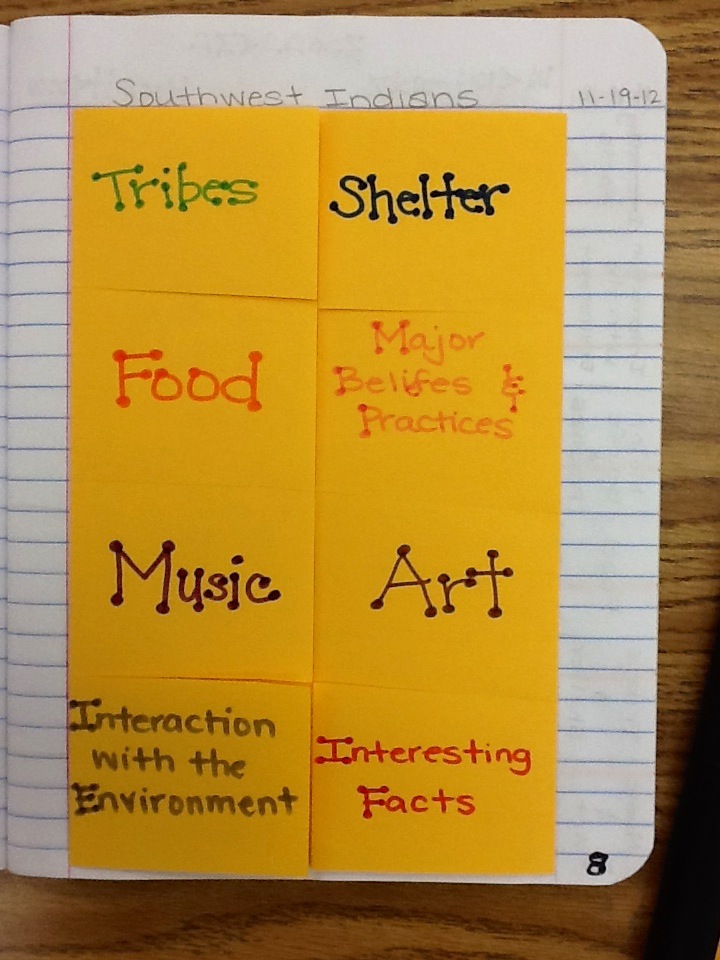 Southwest Indians 11-19-12
Tribes
Shelter
Food
Major
Belifes &
Practices
Music
Art
Interaction
with the
Environment
Interesting
Facts
8